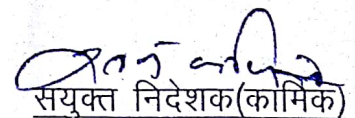 सयुक्त निदेशक(कार्मिक)